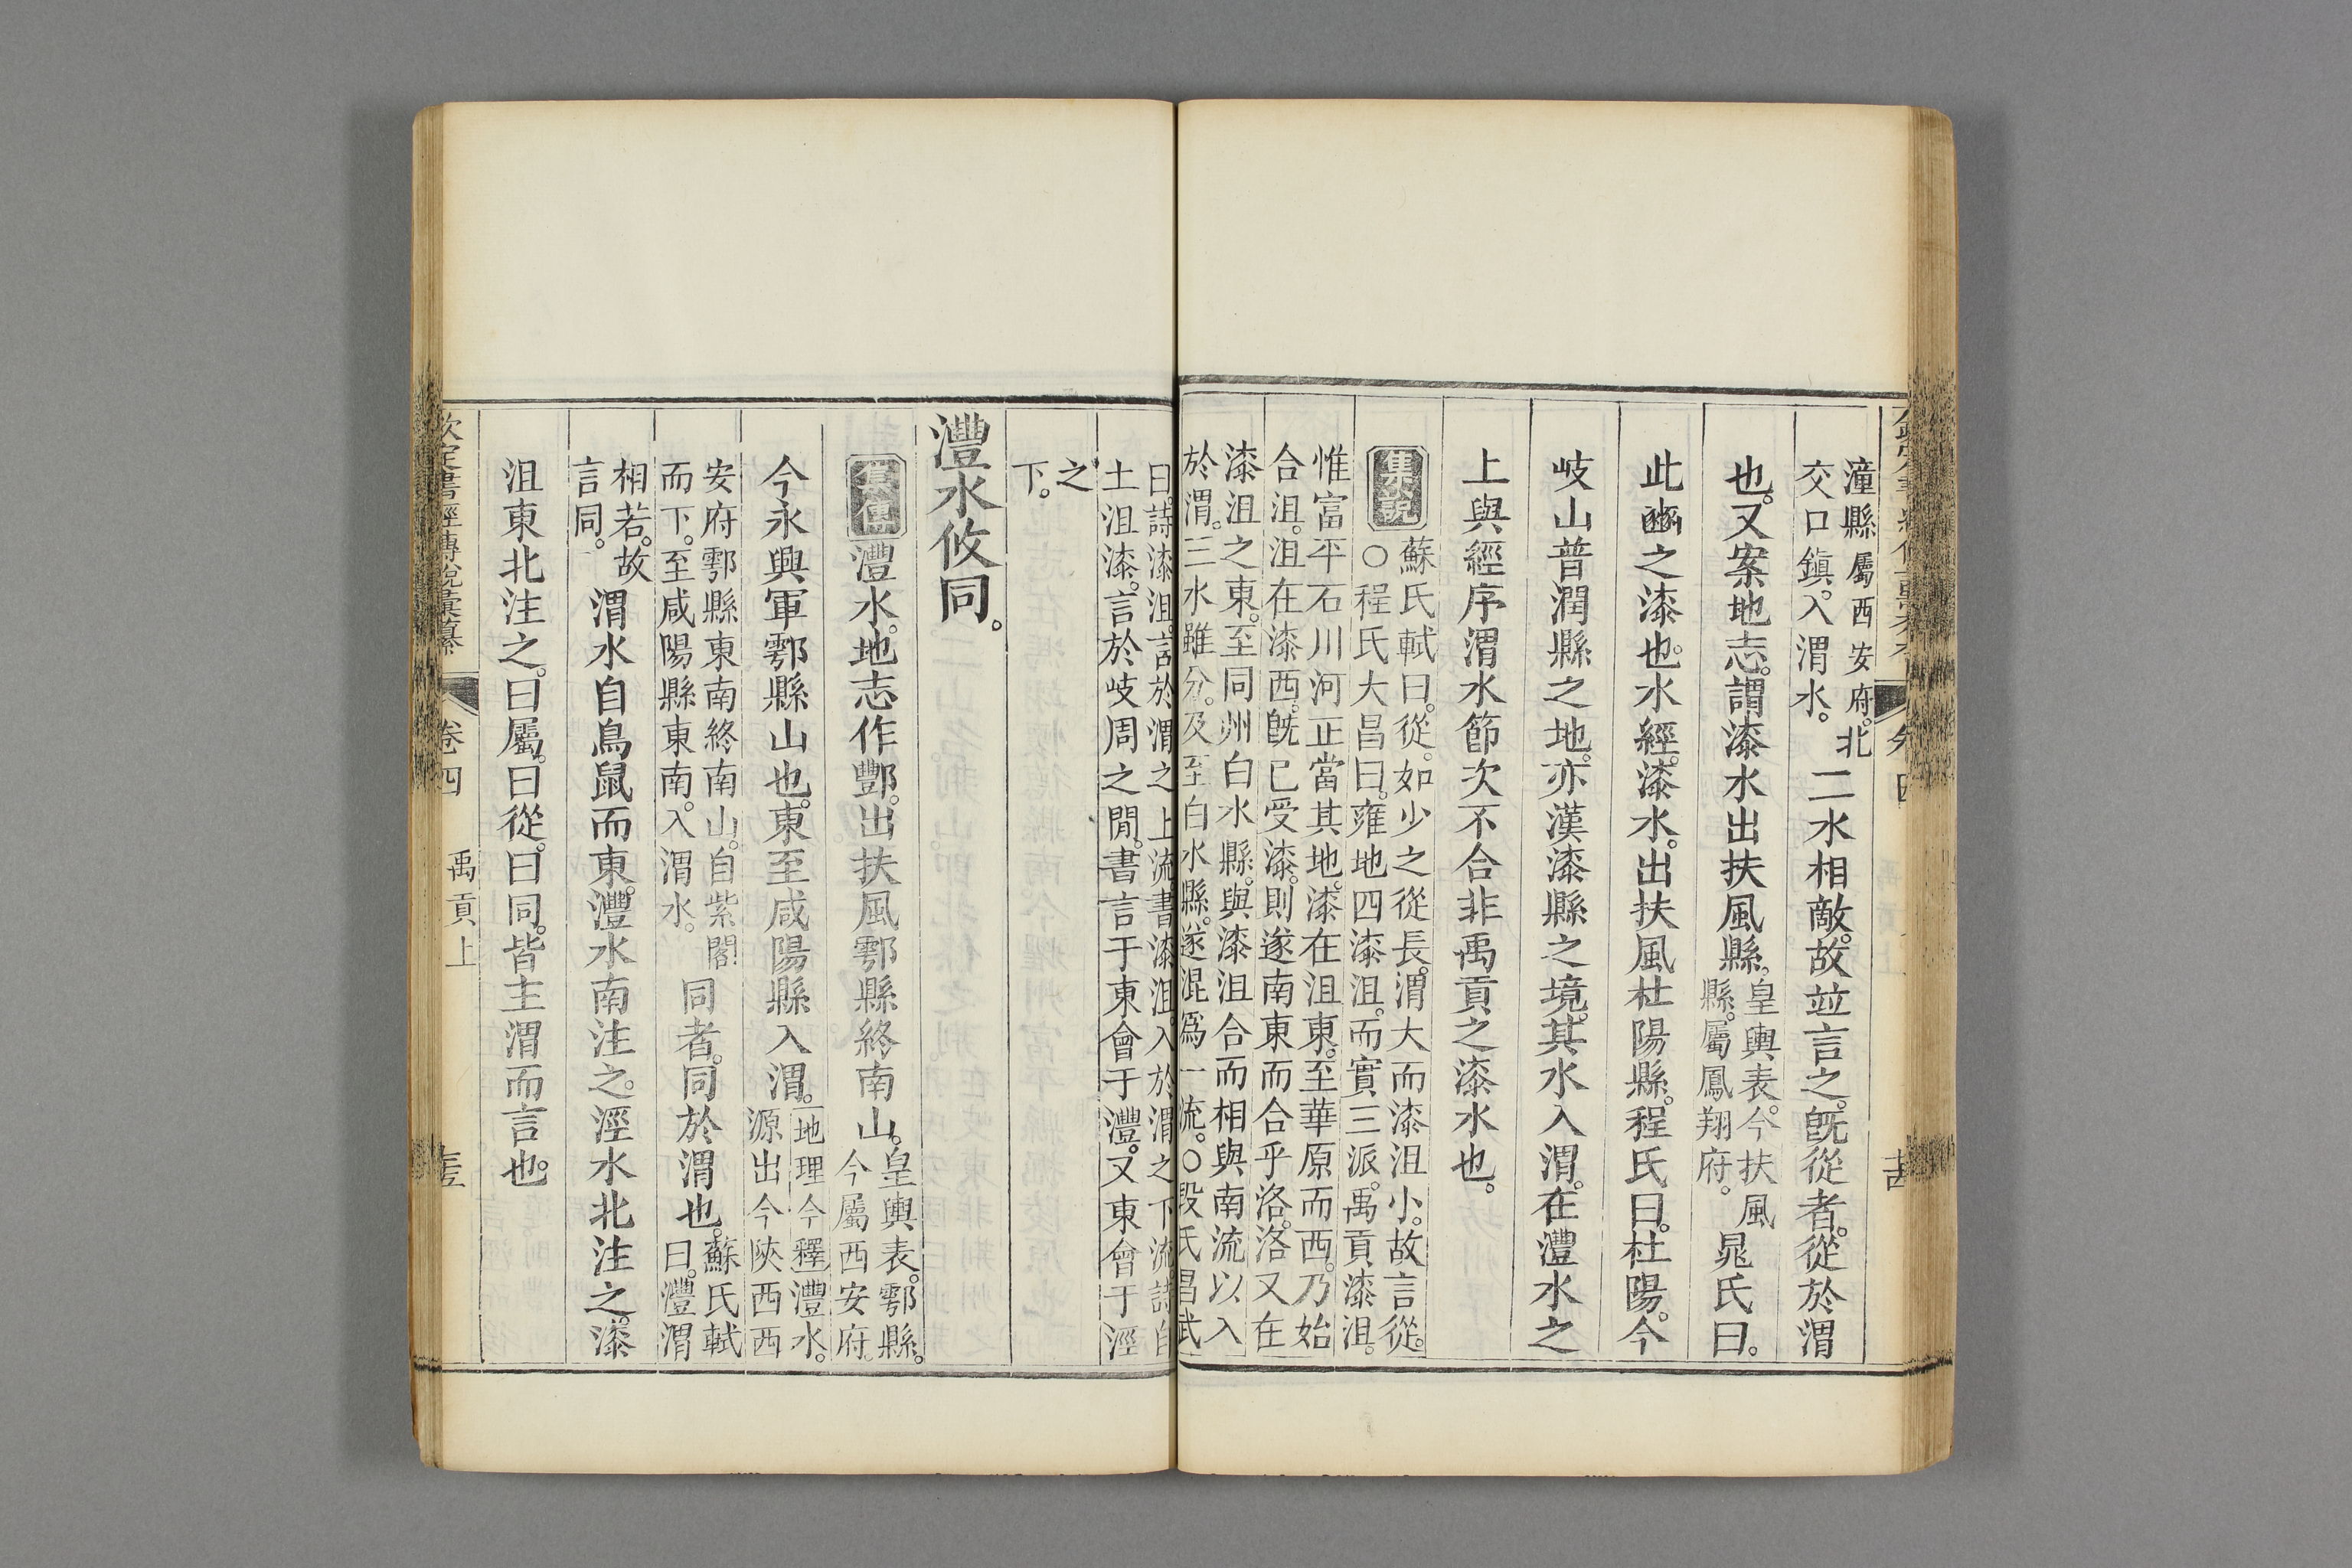 潼縣屬西安府。北
交口鎮。入渭水。
二水相敵。故竝言之。旣從者。從於渭
也。又案地志。謂漆水出扶風縣。
皇輿表。今扶風
縣。屬鳳翔府。
晁氏曰。
此豳之漆也。水經。漆水。出扶風杜陽縣。程氏曰。杜陽。今
岐山普潤縣之地。亦漢漆縣之境。其水入渭。在灃水之
上與經序渭水節次不合非禹貢之漆水也。
集說
蘇氏軾曰。從。如少之從長。渭大而漆沮小。故言從。
○程氏大昌曰。雍地四漆沮。而實三派。禹貢漆沮。
惟富平石川河正當其地。漆在沮東。至華原而西。乃始
合沮。沮在漆西。旣已受漆。則遂南東而合乎洛。洛又在
漆沮之東。至同州白水縣。與漆沮合而相與南流以入
於渭。三水雖分。及至白水縣。遂混爲一流。○段氏昌武
曰。詩漆沮。言於渭之上流書漆沮。入於渭之下流。詩自
土沮漆。言於岐周之閒。書言于東會于灃。又東會于涇
之
下。
灃水攸同。
集傳
灃水。地志作酆。出扶風鄠縣終南山。
皇輿表。鄠縣。
今屬西安府。
今永興軍鄠縣山也。東至咸陽縣入渭。
地理今釋灃水。
源出今陝西西
安府鄠縣東南終南山。自紫閣
而下。至咸陽縣東南。入渭水。
同者。同於渭也。
蘇氏軾
曰。灃渭
相若。故
言同。
渭水自鳥鼠而東。灃水南注之。涇水北注之。漆
沮東北注之。曰屬。曰從。曰同。皆主渭而言也。
欽定書經傳說彙纂
卷四
禹貢上